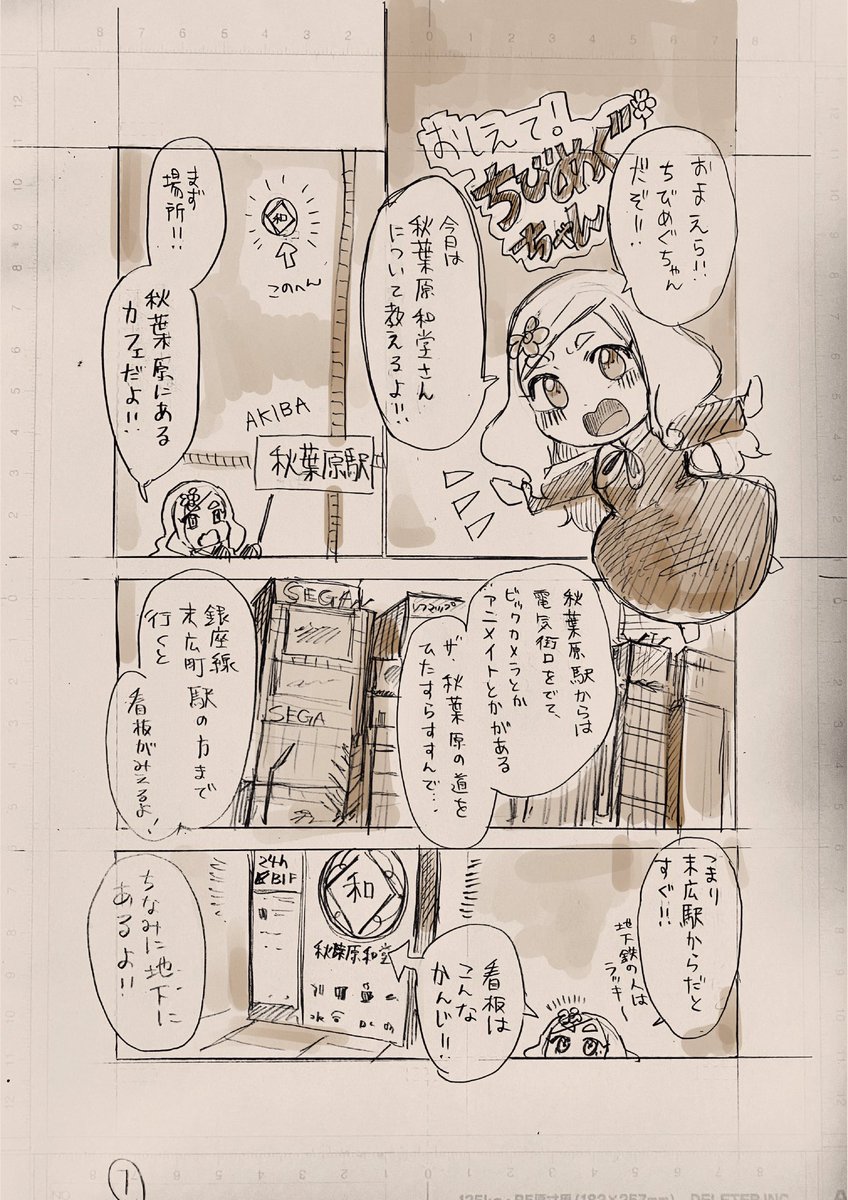 おしえて!
ちびめぐ
ちゃん
おまえら!!
ちびめぐちゃん
だぞ!!
今月は
秋葉原和堂さん
について教えるよ!!
まず
場所!!
秋葉原にある
カフェだよ!!
和
このへん
AKIBA
秋葉原駅
秋葉原駅からは
電気街口をでて、
ビックカメラとか
アニメイトとかがある
ザ・秋葉原の道を
ひたすらすすんで…
ソフマップ
SEGA
SEGA
銀座線
末広町駅の方まで
行くと
看板がみえるよ!
つまり
末広駅からだと
すぐ!!
地下鉄の人は
ラッキー
看板は
こんな
かんじ!!
24h
B1F
和
秋葉原和堂
ちなみに地下に
あるよ!!
1
135kg・B5原寸原(182×257mm) DELETER INC.